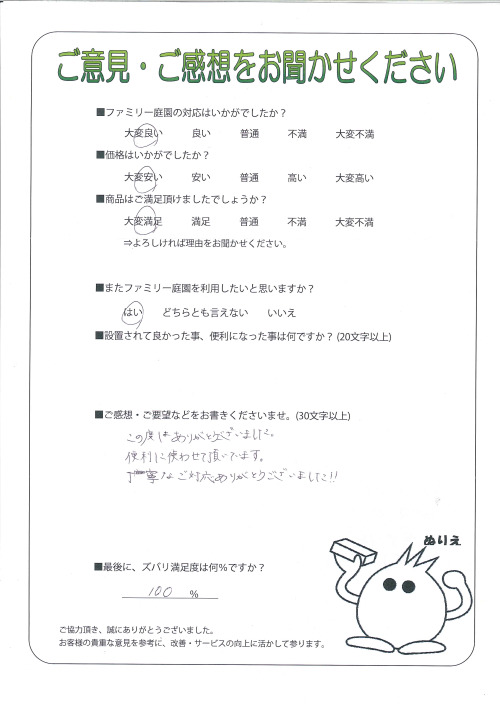 ご意見・ご感想をお聞かせください
■ファミリー庭園の対応はいかがでしたか？
大変良い 良い 普通 不満 大変不満
■価格はいかがでしたか？
大変安い 安い 普通 高い 大変高い
■商品はご満足頂けましたでしょうか？
大変満足 満足 普通 不満 大変不満
⇒よろしければ理由をお聞かせください。
■またファミリー庭園を利用したいと思いますか？
はい どちらとも言えない いいえ
■設置されて良かった事、便利になった事は何ですか？(20文字以上)
■ご感想・ご要望などをお書きくださいませ。(30文字以上)
この度はありがとうございました。
便利に使わせて頂いてます。
丁寧なご対応ありがとうございました!!
ぬりえ
■最後に、ズバリ満足度は何%ですか？
100 %
ご協力頂き、誠にありがとうございました。
お客様の貴重な意見を参考に、改善・サービスの向上に活かして参ります。